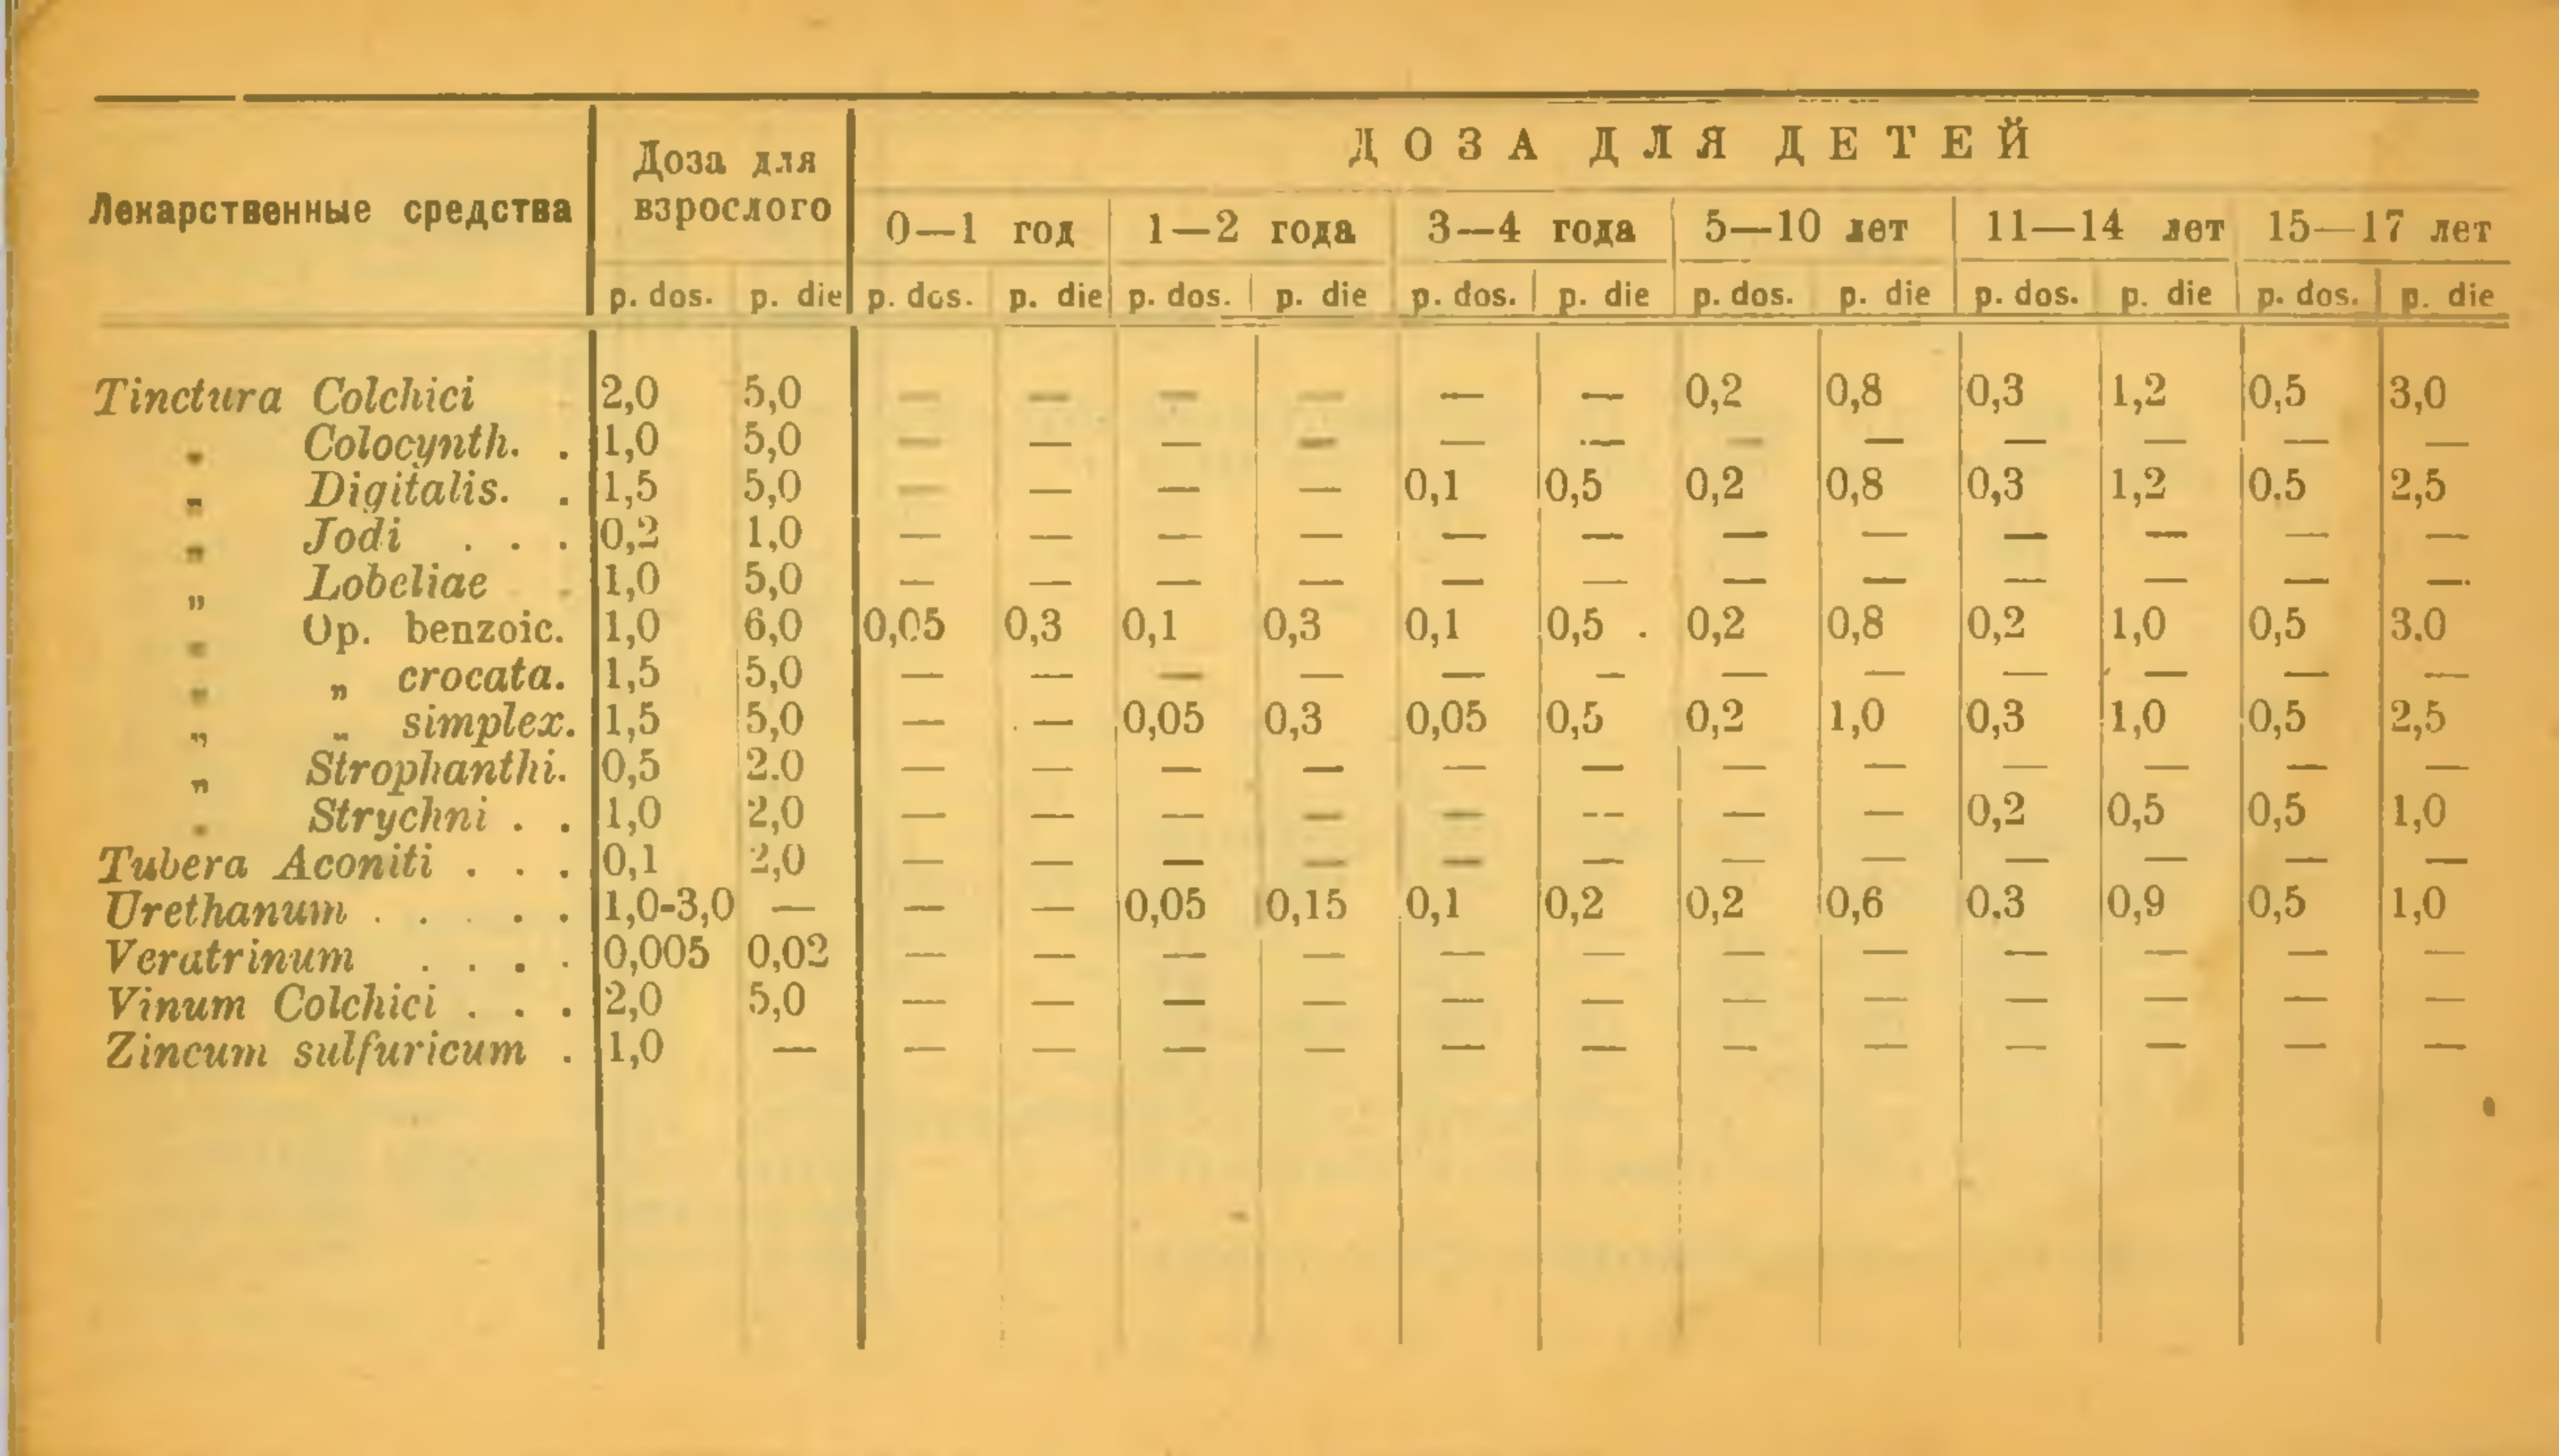 Лекарственные средства Доза для взрослого ДОЗА ДЛЯ ДЕТЕЙ
0—1 год 1—2 года 3—4 года 5—10 лет 11—14 лет 15—17 лет
p. dos. p. die p. dos. p. die p. dos. p. die p. dos. p. die p. dos. p. die p. dos. p. die p. dos. p. die
Tinctura Colchici 2,0 5,0 — — — — — — 0,2 0,8 0,3 1,2 0,5 3,0
„ Colocynth. . 1,0 5,0 — — — — — — — — — — — —
„ Digitalis. . 1,5 5,0 — — — — 0,1 0,5 0,2 0,8 0,3 1,2 0.5 2,5
„ Jodi . . . 0,2 1,0 — — — — — — — — — — — —
„ Lobeliae . 1,0 5,0 — — — — — — — — — — — —
„ Op. benzoic. 1,0 6,0 0,05 0,3 0,1 0,3 0,1 0,5 . 0,2 0,8 0,2 1,0 0,5 3.0
„ „ crocata. 1,5 5,0 — — — — — — — — — — — —
„ „ simplex. 1,5 5,0 — — 0,05 0,3 0,05 0,5 0,2 1,0 0,3 1,0 0,5 2,5
„ Strophanthi. 0,5 2.0 — — — — — — — — — — — —
„ Strychni . . 1,0 2,0 — — — — — — — — 0,2 0,5 0,5 1,0
Tubera Aconiti . . . 0,1 2,0 — — — — — — — — — — — —
Urethanum . . . . . 1,0-3,0 — — — 0,05 0,15 0,1 0,2 0,2 0,6 0.3 0,9 0,5 1,0
Veratrinum . . . . 0,005 0,02 — — — — — — — — — — — —
Vinum Colchici . . . 2,0 5,0 — — — — — — — — — — — —
Zincum sulfuricum . 1,0 — — — — — — — — — — — — —